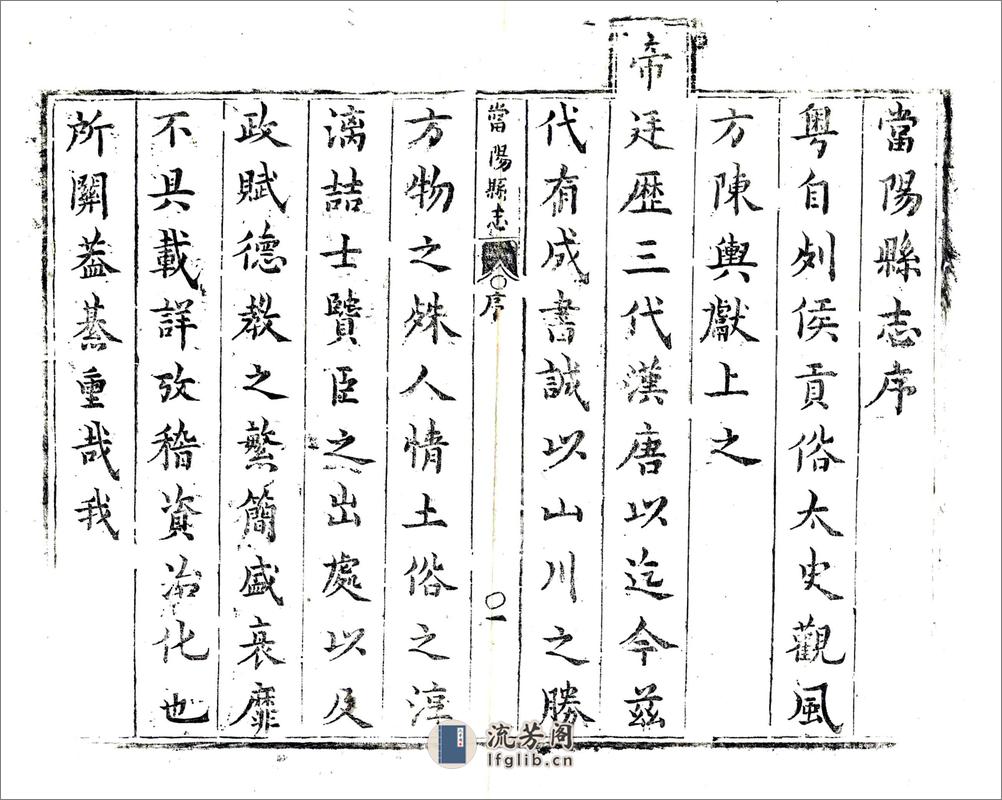 當陽縣志序
粤自列侯貢俗太史觀風
方陳輿獻上之
帝廷歷三代漢唐以迄今兹
代有成書誠以山川之勝
當陽縣志 序 一
方物之殊人情土俗之淳
漓喆士賢臣之出處以及
政賦德教之繁簡盛衰靡
不具載詳攷稽資治化也
所關葢綦重哉我
流芳阁
lfglib.cn